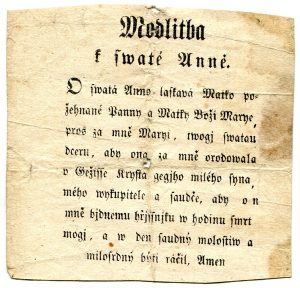 Modlitba
k swaté Anně.
O swatá Anno laskavá Matko po-
žehnané Panny a Matky Boži Marye,
pros za mně Maryi, twogj swatau
dceru, aby ona za mně orodowala
v Gežisse Krysta gegjho milého syna,
mého wykupitele a saudče, aby on
mně bjdnemu hřjssnjku w hodinu smrt
mogj, a w den saudný molostiw a
milosrdný býti ráčil, Amen